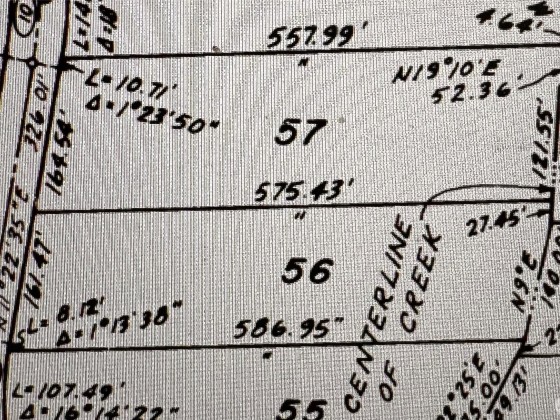 10
L=14
Δ=18
557.99'
"
L=10.71'
Δ=1°23'50"
N19°10'E
52.36'
326.01'
164.54'
57
121.55'
575.43'
"
27.45'
22'35"E
161.47'
56
CENTERLINE
OF
CREEK
N9°E
L=8.12'
Δ=1°13'38"
586.95"
"
L=107.49'
Δ=16°14'22"
55
25'E